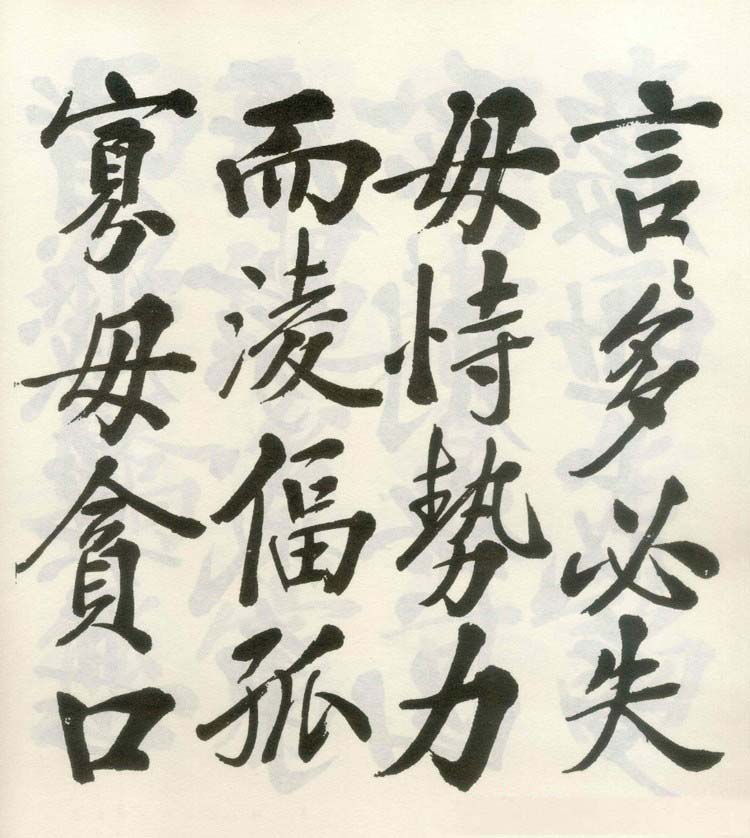 言〻多必失
毋恃勢力
而淩偪孤
寡毋貪口